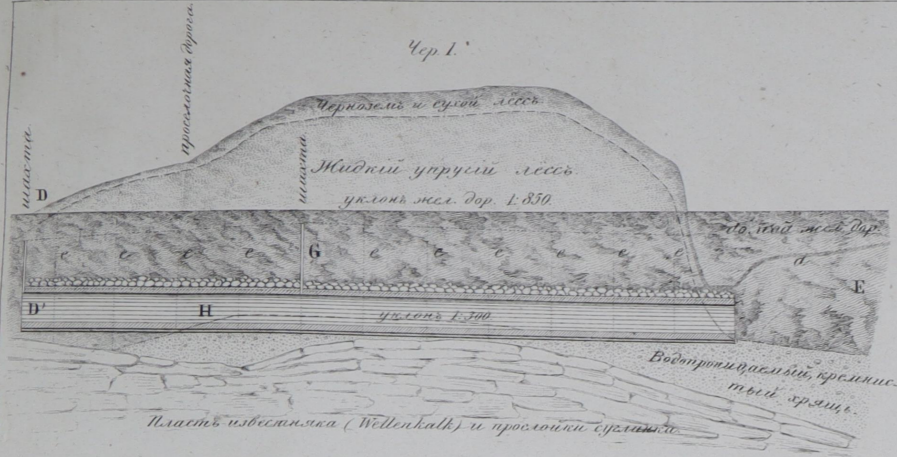 Чер. 1.
просёлочная дорога.
шахта.
шахта.
Черноземъ и сухой лёссъ.
Жидкій упругій лёссъ.
уклонъ жел. дор. 1:850.
D
жел. дор.
c c c c G c c c c c c
d
E
D'
H
уклонъ 1:300.
Водопроницаемый, кремнис-
тый хрящъ.
Пластъ известняка (Wellenkalk) и прослойки суглинка